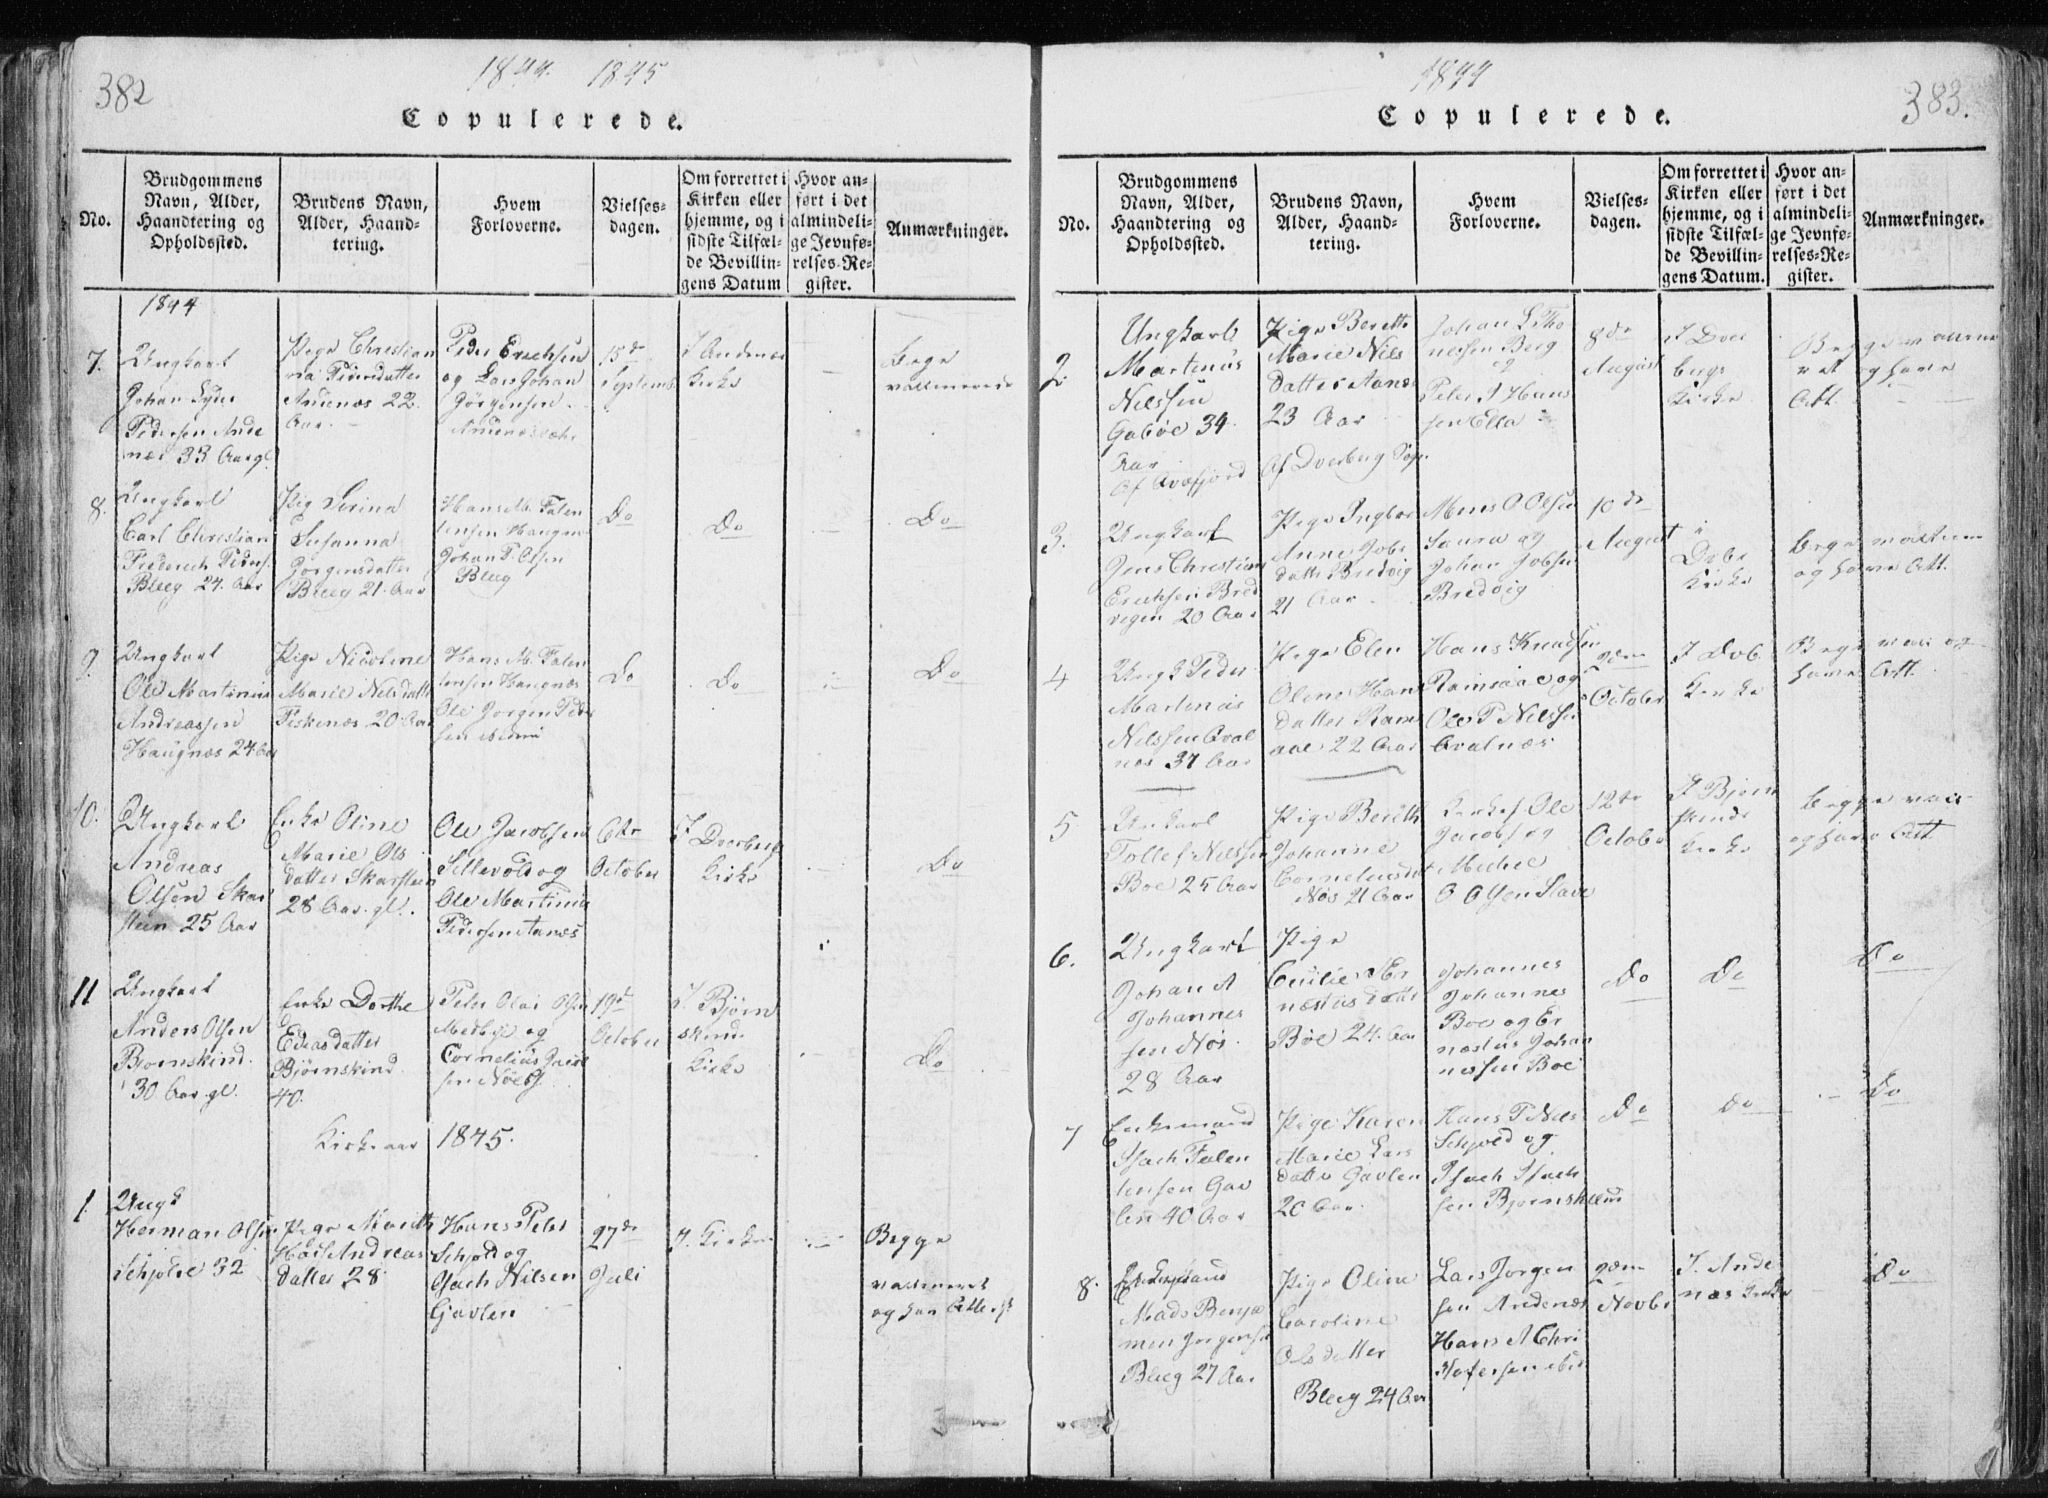 382
1844. 1845
Copulerede.
No.
Brudgommens
Navn, Alder,
Haandtering og
Opholdssted.
Brudens Navn,
Alder, Haand-
tering.
Hvem
Forloverne.
Vielses-
dagen.
Om forrettet i
Kirken eller
hjemme, og i
sidste Tilfæl-
de Bevillin-
gens Datum
Hvor an-
ført i det
almindeli-
ge Jevnfø-
relses-Re-
gister.
Anmærkninger.
1844
7.
Ungkarl
Johan
Pedersen Ande
næs 33 Aar gl.
Pige Christian
na Pedersdatter
Andenæs 22.
Aar.
Peder Erichsen
og Lars Johan
Jørgensen
15de
Septemb
I Andenæs
Kirke
Begge
8.
Ungkarl
Carl Christian
Frederich Peders.
Bleeg 24. Aar
Pig Serina
Susanna
Jorgensdatter
Bleeg 21. Aar
Hans M. Falen
tinsen Haugnæs
Johan P. Olsen
Bleeg
Do
Do
Do
9.
Ungkarl
Ole Martinus
Andreassen
Haugnæs 24 Aar
Pige Nicoline
Marie Nelsdatte
Fiskenæs 20 Aar
Hans M. Falen
tinsen Haugnæs
Ole Jorgen Peder
sen
Do
Do
Do
10.
Ungkarl
Andreas
Olsen Skar
stein 25 Aar
Enke Oline
Marie Ols
datter Skarstein
28 Aar. gl.
Ole Jacobsen
Sellevold og
Ole Martinus
Pedersen Aanæs
6te
October
I Dverberg
Kirke
Do
11
Ungkarl
Anders Olsen
Bjornskind.
30 Aar gl.
Enke Dorthe
Edeasdatter
Bjørnskind
40.
Peter Olai Olsen
Medbye og
Cornelius Jacob
sen
19de
October
I Bjørn
skind
Kirke
Do
Kirkeaar 1845.
1.
Ungk
Herman Olsen
Schjolde 32
Pige Marith
Andreas
datter 28
Hans Peter
Schjold og
Isach Nilsen
Gavlen
27de
Juli
I. Kirken
Begge
vaccineret
og har Attest
383.
1844
Copulerede.
No.
Brudgommens
Navn, Alder,
Haandtering og
Opholdssted.
Brudens Navn,
Alder, Haand-
tering.
Hvem
Forloverne.
Vielses-
dagen.
Om forrettet i
Kirken eller
hjemme, og i
sidste Tilfæl-
de Bevillin-
gens Datum.
Hvor an-
ført i det
almindeli-
ge Jevnfø-
relses-Re-
gister.
Anmærkninger.
2.
Ungkarl
Martinus
Nilssen
Gabøe 34.
Aar
Pige Berette
Marie Nils
datter Aanæs
23 Aar
Af Dverberg Sogn
Johan
Berg
og
Peter J Hans
sen Ella
8de
August
I Dver
bergs
Kirke
Begge vaccine
ret og have
Att.
3.
Ungkarl
Jens Christian
Erichsen Bred
vigen 20 Aar
Pige Ingbor
Anne Jobs
datter Bredvig
21 Aar
Mons O Olsen
Saura og
Johan Jobsen
Bredvig
10de
August
i
Dvbr
Kirke
Begge
og have Att.
4
Ungk Peder
Martinus
Nilssen Aval
næs 37 Aar
Pige Elen
Oline Hans
datter Ram
aae 22 Aar
Hans Knudsen
Ramsaae og
Ole P Nilssen
Avalnæs
2den
October
I Dvb.
Kirke
Begge vac: og
have Att.
5
Unkarl
Tollef Nilssen
Boe 25 Aar
Pige Berith
Johanne
Corneliusdat
Nøs 21 Aar
Ole
Jacobs og
O Olsen
12te
October
I Bjørn
skinds
Kirke
Begge vac:
og have Att
6.
Ungkarl
Johan A
Johannes
sen Nøs.
28 Aar
Pige
Cecilie Er
næstus datter
Böe 24. Aar
Johannes
Johannes
Boe og Er
næstus Johan
nessen Boe
Do
Do
Do
7
Enkemand
Isach Falen
tinsen Gav
len 40 Aar
Pige Karen
Marie Lars
datter Gavlen
20 Aar.
Hans P Nils
Schjold og
Isach Isach
sen Bjornskind
Do
Do
Do
8.
Mads Benja
men Jorgensen
Bleeg 27 Aar
Pige Oline
Caroline
Olsdatter
Bleeg 24 Aar
Lars Jorgen
sen Andenæs
Hans A Chri
stofersen
2den
Novbr
I. Ande
næs Kirke
Do